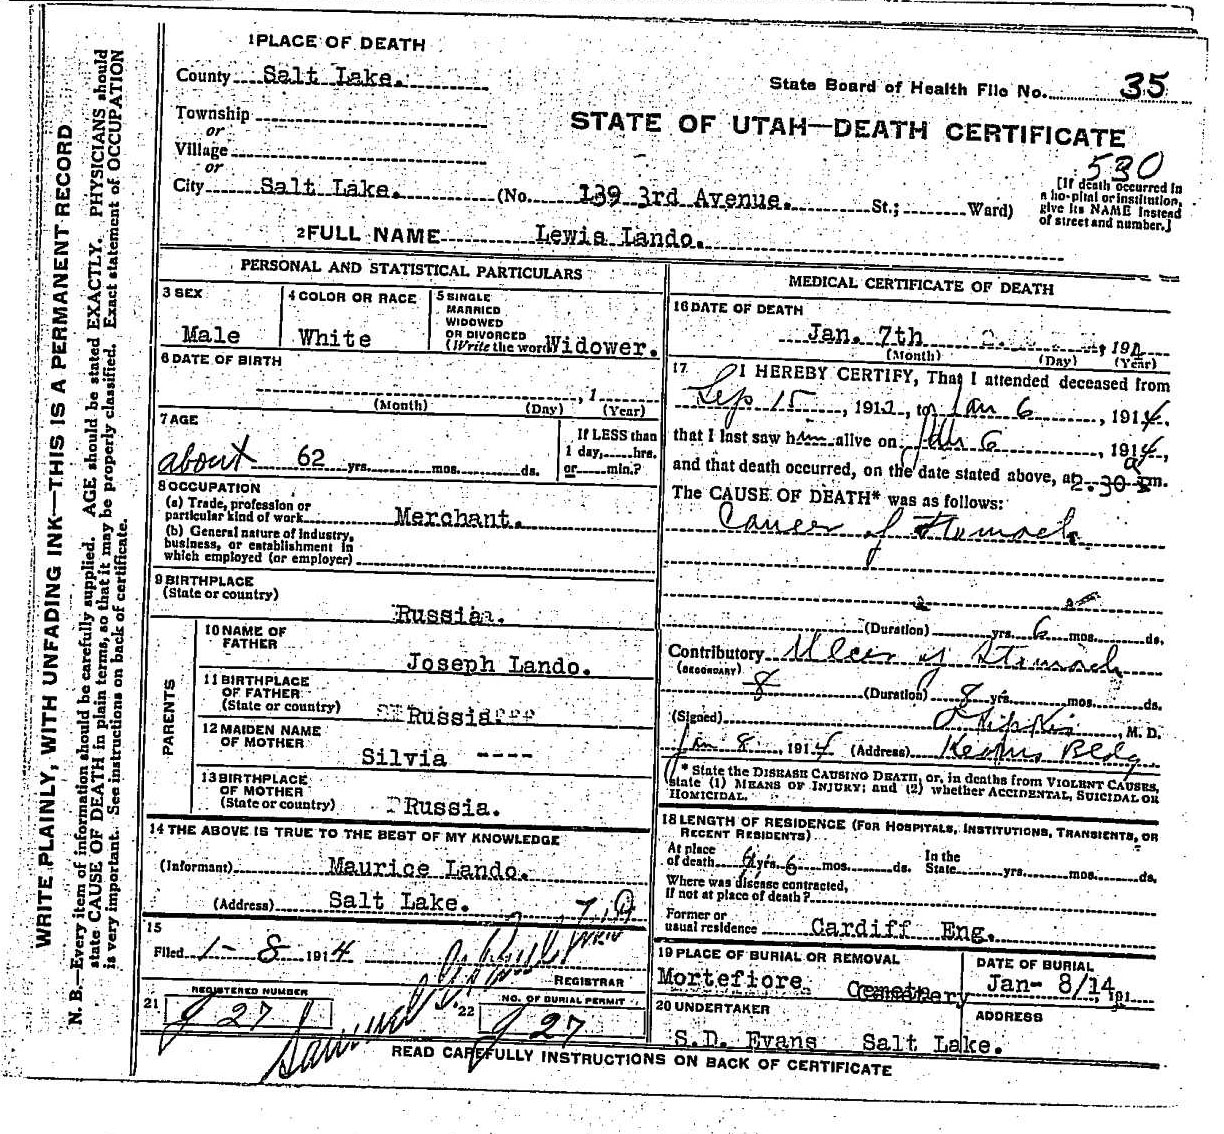 1 PLACE OF DEATH
County Salt Lake.
State Board of Health File No. 35
Township
or
STATE OF UTAH—DEATH CERTIFICATE
Village
or
530
City Salt Lake. (No. 139 3rd Avenue. St.; Ward)
[If death occurred in
a hospital or institution,
give its NAME instead
of street and number.]
2 FULL NAME Lewis Lando.
PERSONAL AND STATISTICAL PARTICULARS
3 SEX
Male
4 COLOR OR RACE
White
5 SINGLE
MARRIED
WIDOWED
OR DIVORCED
(Write the word) Widower.
6 DATE OF BIRTH
, 1
(Month) (Day) (Year)
7 AGE
about 62 yrs. mos. ds.
If LESS than
1 day, hrs.
or min.?
8 OCCUPATION
(a) Trade, profession or
particular kind of work Merchant.
(b) General nature of industry,
business, or establishment in
which employed (or employer)
9 BIRTHPLACE
(State or country)
Russia.
PARENTS
10 NAME OF
FATHER
Joseph Lando.
11 BIRTHPLACE
OF FATHER
(State or country) Russia
12 MAIDEN NAME
OF MOTHER
Silvia ----
13 BIRTHPLACE
OF MOTHER
(State or country) Russia.
14 THE ABOVE IS TRUE TO THE BEST OF MY KNOWLEDGE
(Informant) Maurice Lando.
(Address) Salt Lake.
15
Filed 1-8 1914
REGISTRAR
21 REGISTERED NUMBER
J 27
22 NO. OF BURIAL PERMIT
J 27
MEDICAL CERTIFICATE OF DEATH
16 DATE OF DEATH
Jan. 7th , 191
(Month) (Day) (Year)
17 I HEREBY CERTIFY, That I attended deceased from
Sep 15, 191, to Jan 6, 1914,
that I last saw him alive on Jan 6, 1914,
and that death occurred, on the date stated above, at 2.30 a m.
The CAUSE OF DEATH* was as follows:
Cancer of Stomach
(Duration) yrs. 6 mos. ds.
Contributory Ulcer of Stomach
(SECONDARY) 8
(Duration) 8 yrs. mos. ds.
(Signed) , M. D.
Jan 8, 1914 (Address) Kearns Bldg
* State the DISEASE CAUSING DEATH, or, in deaths from VIOLENT CAUSES,
state (1) MEANS OF INJURY; and (2) whether ACCIDENTAL, SUICIDAL OR
HOMICIDAL.
18 LENGTH OF RESIDENCE (FOR HOSPITALS, INSTITUTIONS, TRANSIENTS, OR
RECENT RESIDENTS)
At place
of death yrs. 6 mos. ds. In the
State yrs. mos. ds.
Where was disease contracted,
if not at place of death?
Former or
usual residence Cardiff Eng.
19 PLACE OF BURIAL OR REMOVAL
Mortefiore Cemetery
DATE OF BURIAL
Jan- 8/14, 191
20 UNDERTAKER
S.D. Evans
ADDRESS
Salt Lake.
READ CAREFULLY INSTRUCTIONS ON BACK OF CERTIFICATE
WRITE PLAINLY, WITH UNFADING INK—THIS IS A PERMANENT RECORD
N. B.—Every item of information should be carefully supplied. AGE should be stated EXACTLY. PHYSICIANS should
state CAUSE OF DEATH in plain terms, so that it may be properly classified. Exact statement of OCCUPATION
is very important. See instructions on back of certificate.